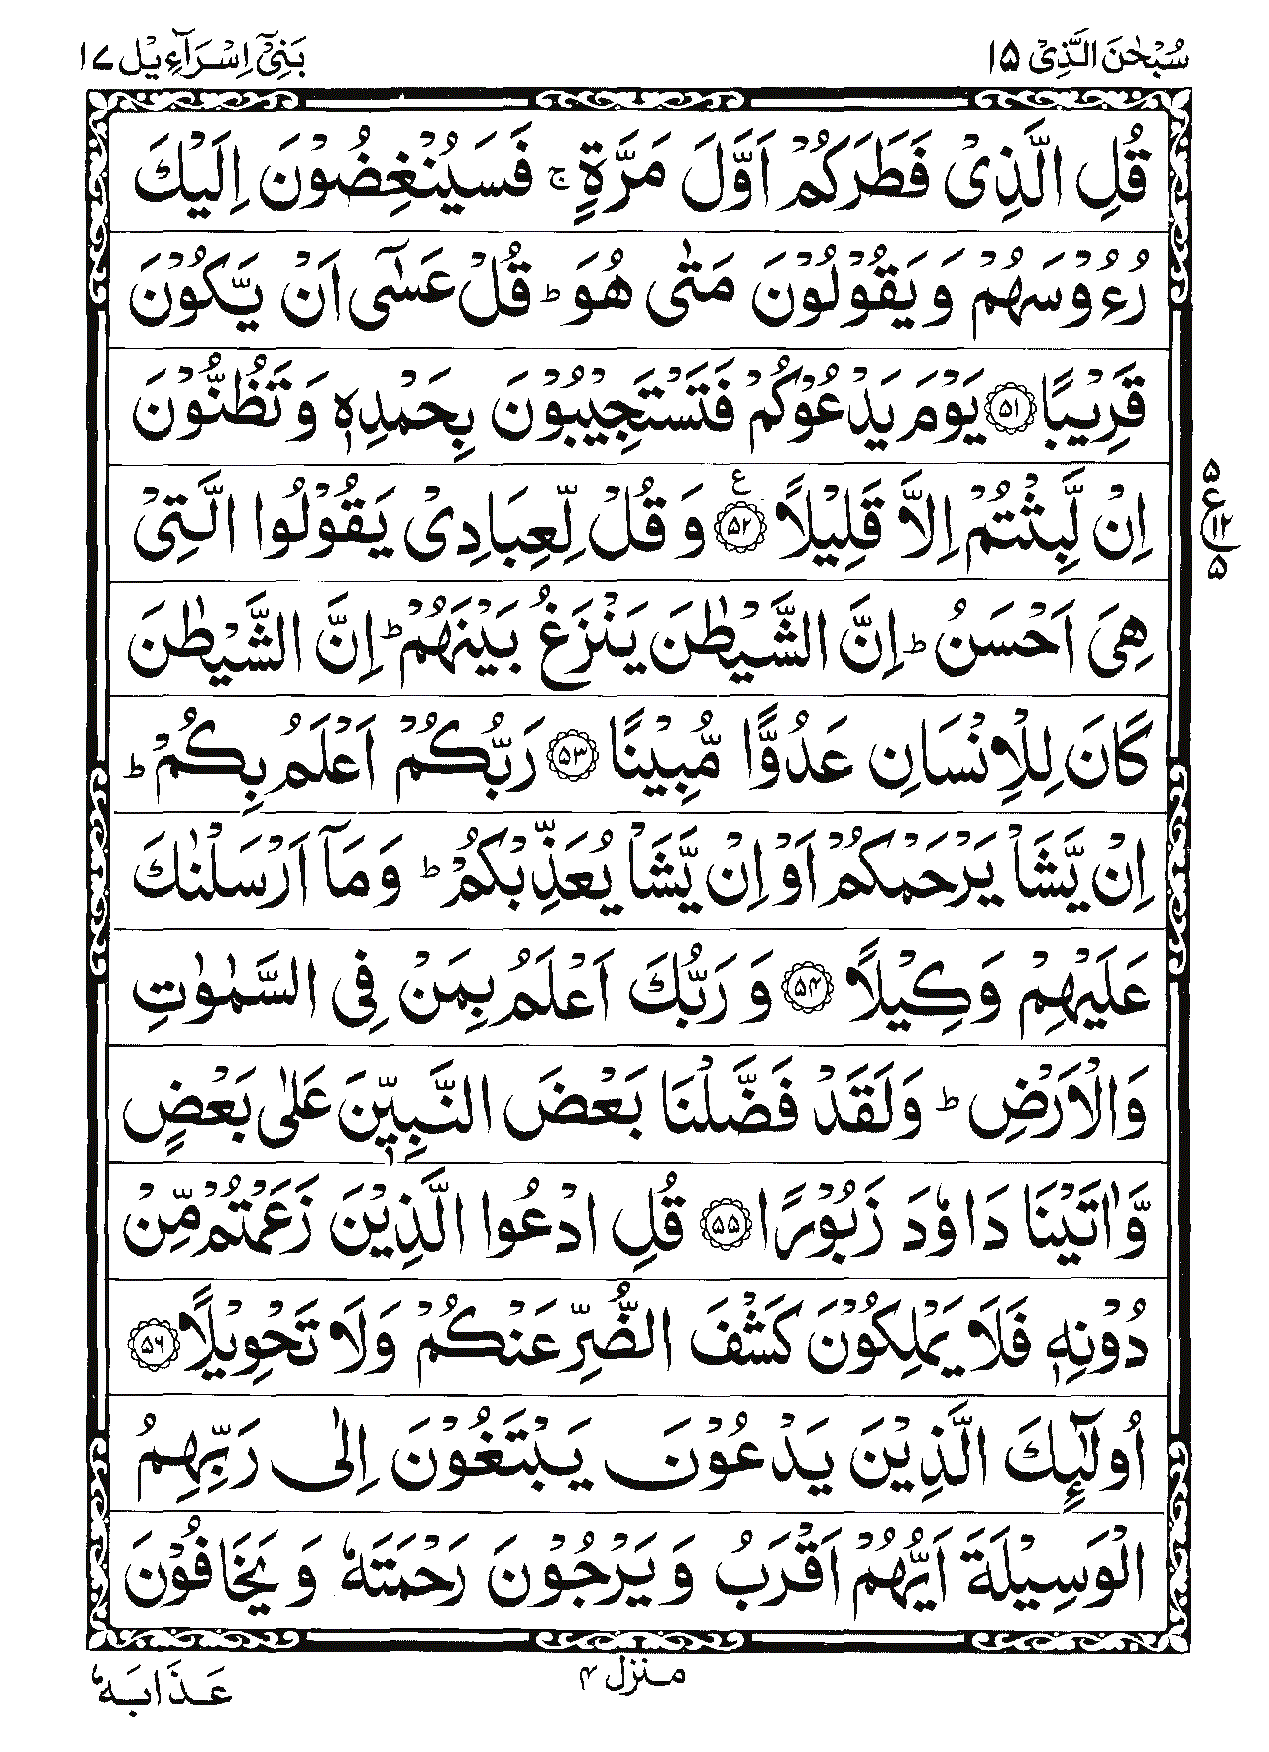 سُبْحٰنَ الَّذِیْ ۱۵
بَنِیْٓ اِسْرَآءِیْل ۱۷
قُلِ الَّذِیْ فَطَرَكُمْ اَوَّلَ مَرَّةٍ ۚ فَسَیُنْغِضُوْنَ اِلَیْكَ
رُءُوْسَهُمْ وَ یَقُوْلُوْنَ مَتٰی هُوَ ؕ قُلْ عَسٰۤی اَنْ یَّكُوْنَ
قَرِیْبًا ۵۱ یَوْمَ یَدْعُوْكُمْ فَتَسْتَجِیْبُوْنَ بِحَمْدِهٖ وَ تَظُنُّوْنَ
اِنْ لَّبِثْتُمْ اِلَّا قَلِیْلًا ۵۲ ع وَ قُلْ لِّعِبَادِیْ یَقُوْلُوا الَّتِیْ
۵ ع ۱۲ ۵
هِیَ اَحْسَنُ ؕ اِنَّ الشَّیْطٰنَ یَنْزَغُ بَیْنَهُمْ ؕ اِنَّ الشَّیْطٰنَ
كَانَ لِلْاِنْسَانِ عَدُوًّا مُّبِیْنًا ۵۳ رَبُّكُمْ اَعْلَمُ بِكُمْ ؕ
اِنْ یَّشَاْ یَرْحَمْكُمْ اَوْ اِنْ یَّشَاْ یُعَذِّبْكُمْ ؕ وَ مَاۤ اَرْسَلْنٰكَ
عَلَیْهِمْ وَكِیْلًا ۵۴ وَ رَبُّكَ اَعْلَمُ بِمَنْ فِی السَّمٰوٰتِ
وَالْاَرْضِ ؕ وَلَقَدْ فَضَّلْنَا بَعْضَ النَّبِیّٖنَ عَلٰی بَعْضٍ
وَّ اٰتَیْنَا دَاوٗدَ زَبُوْرًا ۵۵ قُلِ ادْعُوا الَّذِیْنَ زَعَمْتُمْ مِّنْ
دُوْنِهٖ فَلَا یَمْلِكُوْنَ كَشْفَ الضُّرِّ عَنْكُمْ وَلَا تَحْوِیْلًا ۵۶
اُولٰٓئِكَ الَّذِیْنَ یَدْعُوْنَ یَبْتَغُوْنَ اِلٰی رَبِّهِمُ
الْوَسِیْلَةَ اَیُّهُمْ اَقْرَبُ وَ یَرْجُوْنَ رَحْمَتَهٗ وَ یَخَافُوْنَ
منزل ۴
عَذَابَهٗ